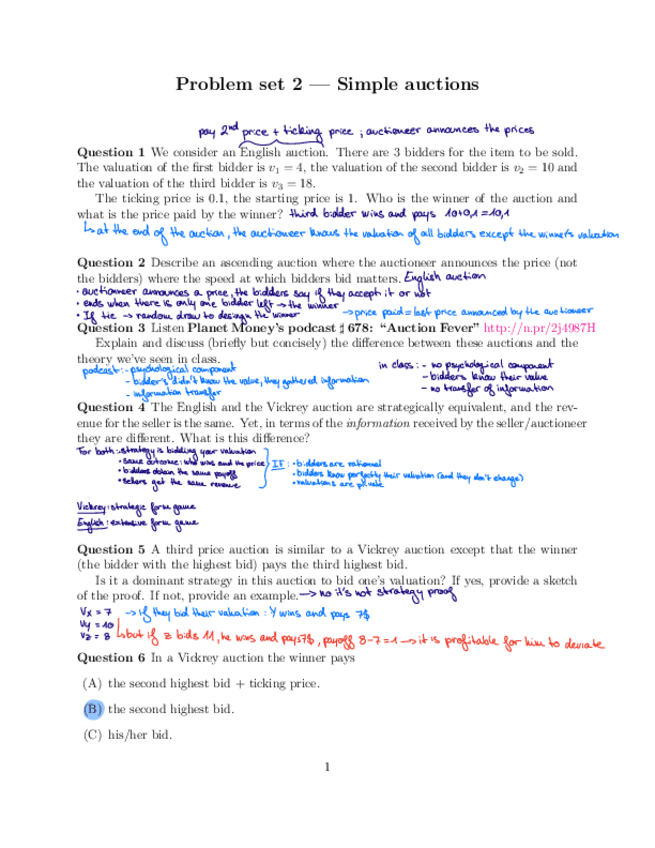 Problem set 2 — Simple auctions
pay 2nd price + ticking price ; auctioneer announces the prices
Question 1 We consider an English auction. There are 3 bidders for the item to be sold.
The valuation of the first bidder is v1 = 4, the valuation of the second bidder is v2 = 10 and
the valuation of the third bidder is v3 = 18.
The ticking price is 0.1, the starting price is 1. Who is the winner of the auction and
what is the price paid by the winner? third bidder wins and pays 10+0,1 = 10,1
↳ at the end of the auction, the auctioneer knows the valuation of all bidders except the winner's valuation
Question 2 Describe an ascending auction where the auctioneer announces the price (not
the bidders) where the speed at which bidders bid matters. English auction
• auctioneer announces a price, the bidders say if they accept it or not
• ends when there is only one bidder left → the winner
→ price paid = last price announced by the auctioneer
• If tie → random draw to design the winner
Question 3 Listen Planet Money's podcast ♯ 678: "Auction Fever" http://n.pr/2j4987H
Explain and discuss (briefly but concisely) the difference between these auctions and the
theory we've seen in class.
podcast : - psychological component
- bidder's didn't know the value, they gathered information
- information transfer
in class : - no psychological component
- bidders know their value
- no transfer of information
Question 4 The English and the Vickrey auction are strategically equivalent, and the rev-
enue for the seller is the same. Yet, in terms of the information received by the seller/auctioneer
they are different. What is this difference?
For both : • strategy is bidding your valuation
• same outcome : who wins and the price
• bidders obtain the same payoff
• sellers get the same revenue
IF : • bidders are rational
• bidders know perfectly their valuation (and they don't change)
• valuations are private
Vickrey : strategic form game
English : extensive form game
Question 5 A third price auction is similar to a Vickrey auction except that the winner
(the bidder with the highest bid) pays the third highest bid.
Is it a dominant strategy in this auction to bid one's valuation? If yes, provide a sketch
of the proof. If not, provide an example. → no it's not strategy proof
Vx = 7 → If they bid their valuation : Y wins and pays 7$
Vy = 10
Vz = 8 ↳ but if z bids 11, he wins and pays 7$, payoff 8-7 = 1 → it is profitable for him to deviate
Question 6 In a Vickrey auction the winner pays
(A) the second highest bid + ticking price.
(B) the second highest bid.
(C) his/her bid.
1